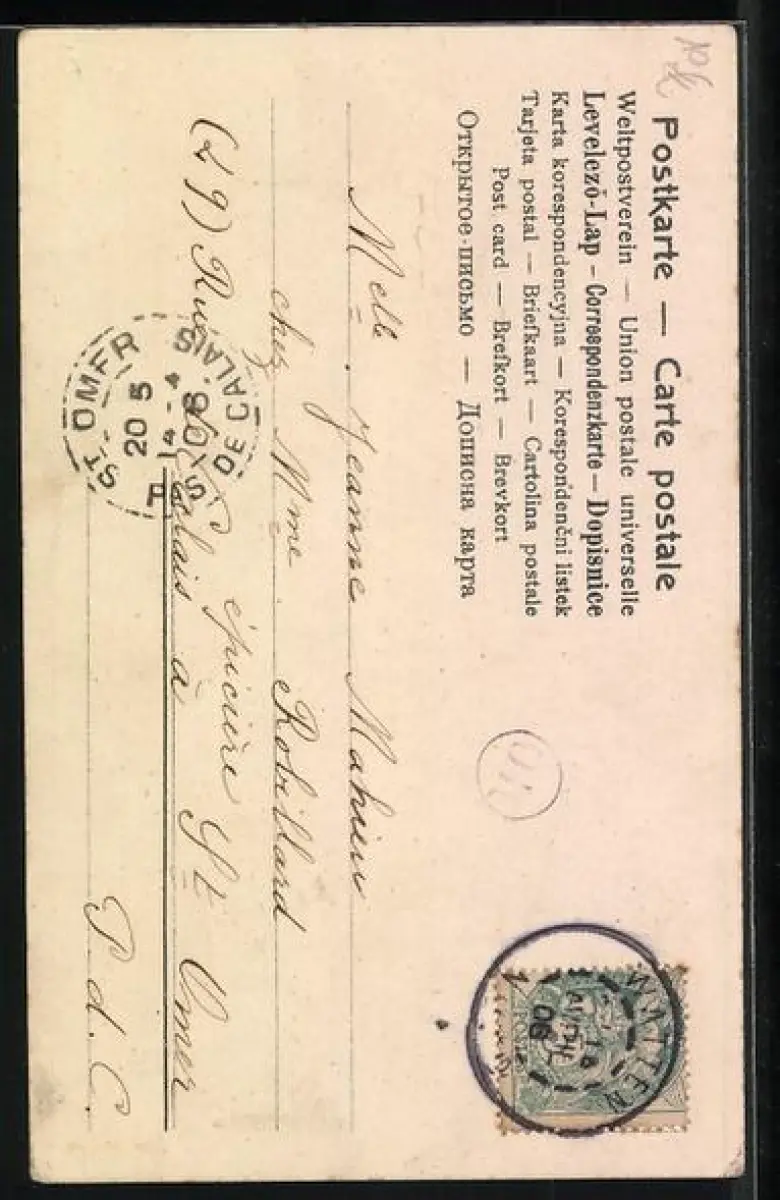 Postkarte — Carte postale
Weltpostverein — Union postale universelle
Levelező-Lap - Correspondenzkarte - Dopisnice
Karta korespondencyjna — Korespondenční listek
Tarjeta postal — Briefkaart — Cartolina postale
Post card — Brefkort — Brevkort
Открытое-письмо — Дописна карта
WATTEN
06
Melle. Jeanne Mahieu
chez Mme. Robillard
épicière St Omer
(29) Rue de Calais à
P. d. C.
ST OMER
20 5
14 - 4
06
DE CALAIS